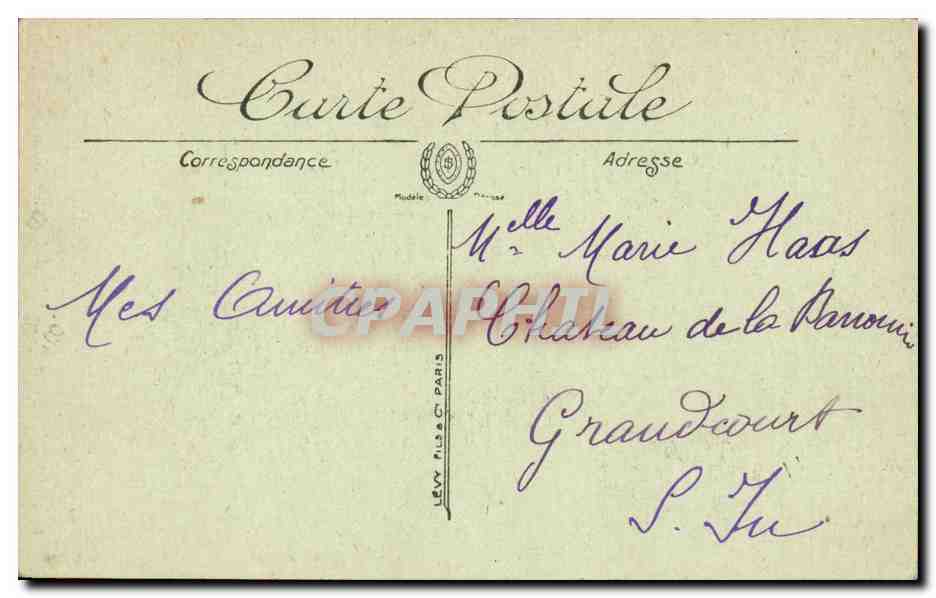 Carte Postale
Correspondance
Adresse
Modèle Déposé
Mes Amitiés
Melle Marie Haas
Château de la
Grandcourt
S. Inf
LÉVY FILS & Cie PARIS
CPAPHIL